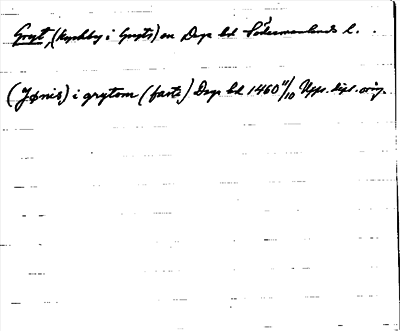 Gryt, (Kyrkby i Gryts) sn Daga hd Södermanlands l.
(Jønis) i grytom (fasta) Daga hd 1460 11/10 Upps. dipl. orig.